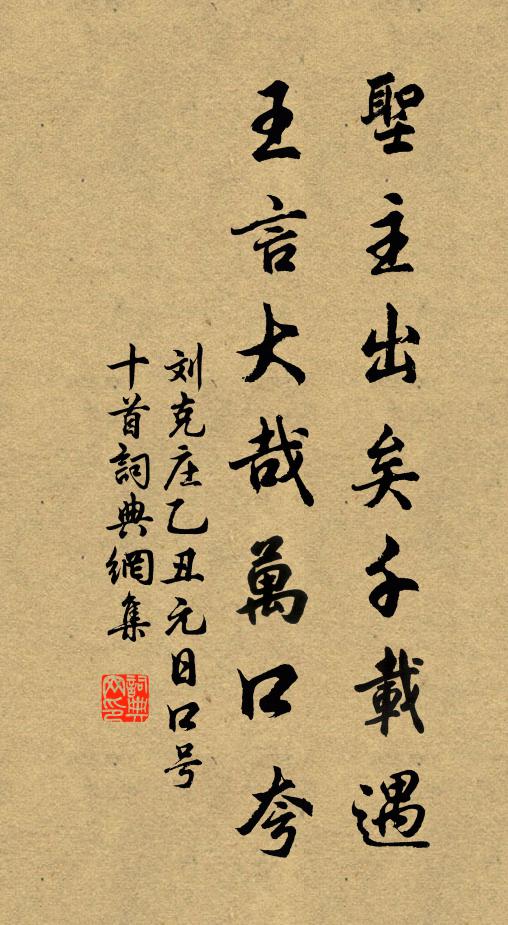 聖主出矣千載遇
王言大哉萬口夸
刘克庄乙丑元日口号
十首詞典網集
詞典網印